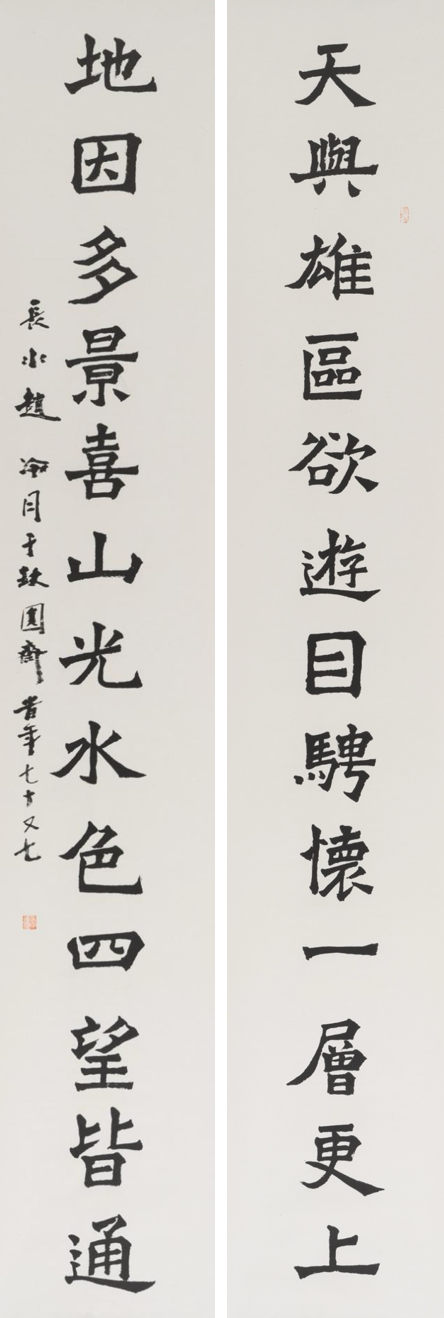 天與雄區欲遊目騁懷一層更上
地因多景喜山光水色四望皆通
長水趙冷月于缺圓齋 昔年七十又七